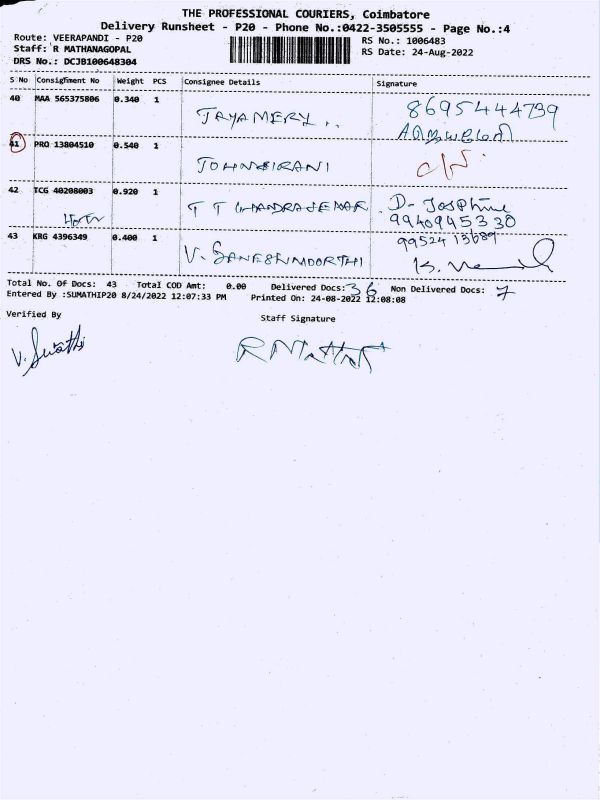 THE PROFESSIONAL COURIERS, Coimbatore
Delivery Runsheet - P20 - Phone No.:0422-3505555 - Page No.:4
Route: VEERAPANDI - P20
RS No.: 1006483
Staff: R MATHANAGOPAL
RS Date: 24-Aug-2022
DRS No.: DCJB100648304
S No Consignment No Weight PCS Consignee Details Signature
40 MAA 565375806 0.340 1 JAYAMERY.. 8695444739
41 PRO 13804510 0.540 1 JOHNSIRANI
42 TCG 40208003 0.920 1 T T CHANDRASEKAR D- Josphine
9940945330
43 KRG 4396349 0.400 1 V. GANESHMOORTHI 99524 13689
Total No. Of Docs: 43 Total COD Amt: 0.00 Delivered Docs: 36 Non Delivered Docs: 7
Entered By :SUMATHIP20 8/24/2022 12:07:33 PM Printed On: 24-08-2022 12:08:08
Verified By Staff Signature
V. Swathi